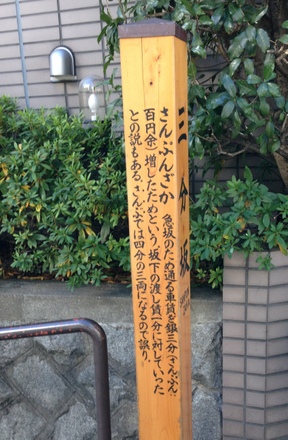 三分坂
さんぷんざか
急坂のため通る車賃を銀三分(さんぷん・
百円余)増したためという。坂下の渡し賃一分に対していった
との説もある。さんぶでは四分の三両になるので誤り。